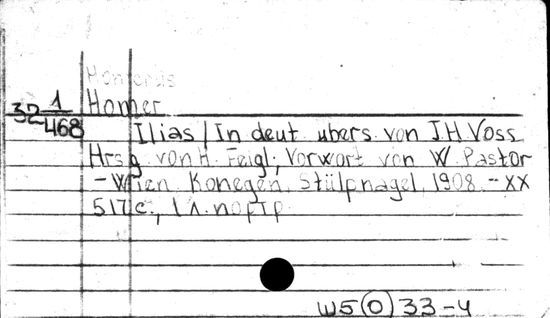 Homerus
32 1/468
Homer
Ilias / In deut. übers. von J H Voss
Hrsg von H. Feigl; Vorwort von W. Pastor
- Wien Konegen, Stülpnagel, 1908. - XX
517 с., 1 л. портр
Ш5(0)33-4